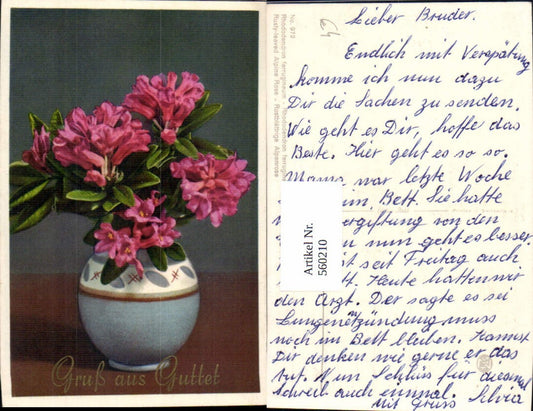 Gruß aus Guttet
No. 979
Rhododendron ferrugineum - Rhododendron ferrugin
Rusty-leaved Alpine Rose - Rostblättrige Alpenrose
Artikel Nr.
560210
Lieber Bruder.
Endlich mit Verspätung
komme ich nun dazu
Dir die Sachen zu senden.
Wie geht es Dir, hoffe das
Beste. Hier geht es so so.
Mama war letzte Woche
Bett. Sie hatte
vergiftung von den
nun geht es besser.
seit Freitag auch
4. Heute hatten wir
den Arzt. Der sagte es sei
Lungenentzündung muss
noch im Bett bleiben. Kannst
Dir denken wie gerne er das
tut. Nun Schluss für diesmal
schreib auch einmal.
mit Gruss Silvia